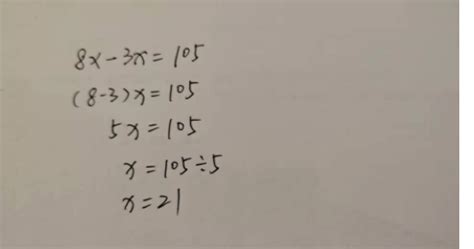 8x-3x=105
(8-3)x=105
5x=105
x=105÷5
x=21